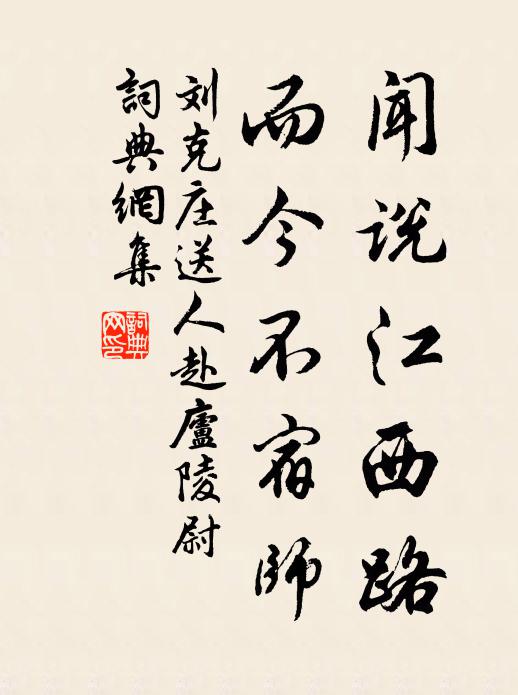 闻说江西路
而今不宿师
刘克庄送人赴廬陵尉
詞典網集
詞典网印